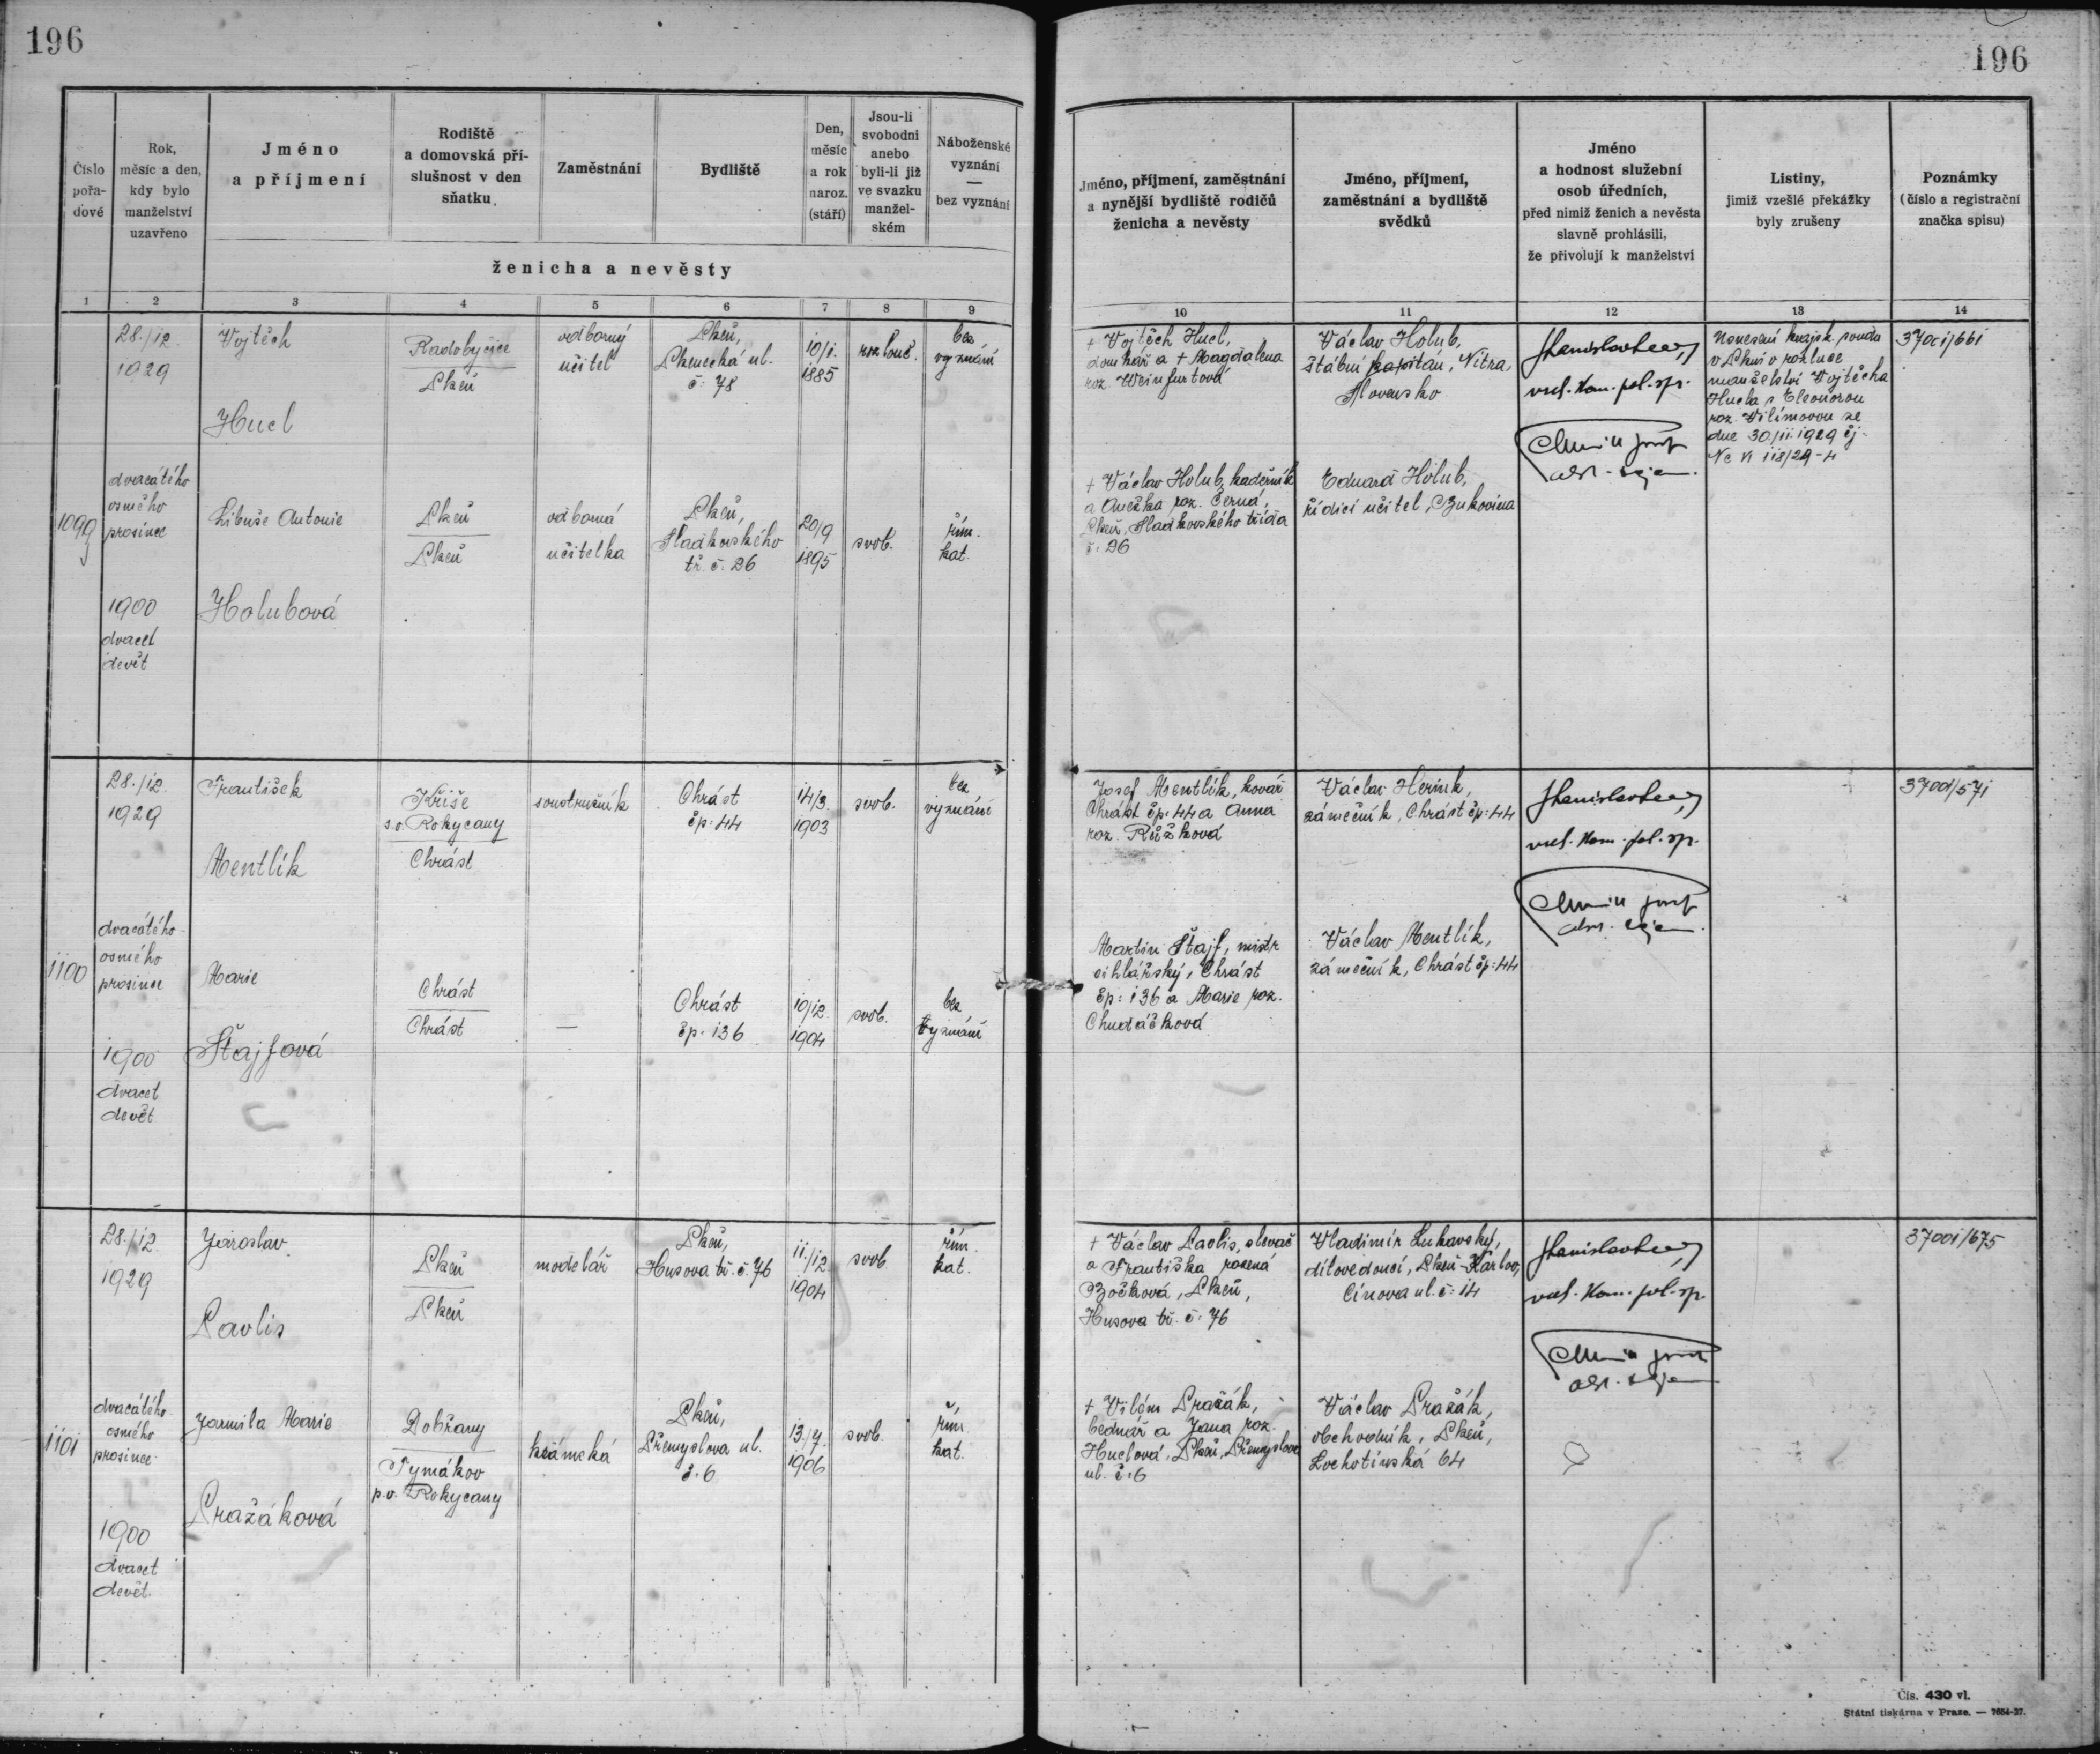 196
196
Číslo pořa-dové
Rok, měsíc a den, kdy bylo manželství uzavřeno
Jméno a příjmení
Rodiště a domovská pří-slušnost v den sňatku
Zaměstnání
Bydliště
Den, měsíc a rok naroz. (stáří)
Jsou-li svobodni anebo byli-li již ve svazku manžel-ském
Náboženské vyznání — bez vyznání
ženicha a nevěsty
Jméno, příjmení, zaměstnání a nynější bydliště rodičů ženicha a nevěsty
Jméno, příjmení, zaměstnání a bydliště svědků
Jméno a hodnost služební osob úředních, před nimiž ženich a nevěsta slavně prohlásili, že přivolují k manželství
Listiny, jimiž vzešlé překážky byly zrušeny
Poznámky (číslo a registrační značka spisu)
1 2 3 4 5 6 7 8 9 10 11 12 13 14
1099
28./12.
1929
dvacátého
osmého
prosince
1900
dvacet
devět
Vojtěch
Hucl
Radobyčice
Plzeň
odborný
učitel
Plzeň,
č: 78
10/1.
1885
rozlouč.
bez
vyznání
+ Vojtěch Hucl,
domkář a + Magdalena
roz. Weinfurtová
Václav Holub,
štábní kapitán, Nitra,
Slovensko
Usnesení krajsk. soudu
v Plzni o rozluce
manželství Vojtěcha
Hucla s Eleonorou
roz. Vilímovou ze
dne 30/11.1929 čj.
Nc VI 118/29-4
37001/661
Libuše Antonie
Holubová
Plzeň
Plzeň
odborná
učitelka
Plzeň,
Sladkovského
tř. č: 26
20/9
1895
svob.
řím.
kat.
+ Václav Holub, kadeřník
a Anežka roz. Černá,
Plzeň, Sladkovského třída
č: 26
Eduard Holub,
řídící učitel, Bukovina
1100
28./12.
1929
dvacátého
osmého
prosince
1900
dvacet
devět
František
Mentlík
Kříše
s.o. Rokycany
Chrást
soustružník
Chrást
čp: 44
14/3.
1903
svob.
bez
vyznání
Josef Mentlík, kovář
Chrást čp: 44 a Anna
roz. Růžková
Václav
zámečník, Chrást čp: 44
37001/571
Marie
Štajfová
Chrást
Chrást
—
Chrást
čp. 136
10/12.
1904
svob.
bez
vyznání
Martin Štajf, mistr
cihlářský, Chrást
čp: 136 a Marie roz.
Chudáčková
Václav Mentlík,
zámečník, Chrást čp: 44
1101
28./12.
1929
dvacátého
osmého
prosince
1900
dvacet
devět.
Jaroslav
Pavlis
Plzeň
Plzeň
modelář
Plzeň,
Husova tř. č. 76
11./12.
1904
svob.
řím.
kat.
+ Václav Pavlis, slevač
a Františka rozená
Bočková, Plzeň,
Husova tř. č: 76
Vladimír Lukavský,
dílovedoucí, Plzeň-Karlov,
ul. č: 14
37001/675
Jarmila Marie
Pražáková
Dobřany
Tymákov
p.o. Rokycany
krámská
Plzeň,
Přemyslova ul.
č. 6
13./7.
1906
svob.
řím.
kat.
+ Vilém Pražák,
bednář a Jana roz.
Huclová, Plzeň, Přemyslova
ul. č. 6
Václav Pražák,
obchodník, Plzeň,
Lochotínská 64
Čís. 430 vl.
Státní tiskárna v Praze. — 7654-27.